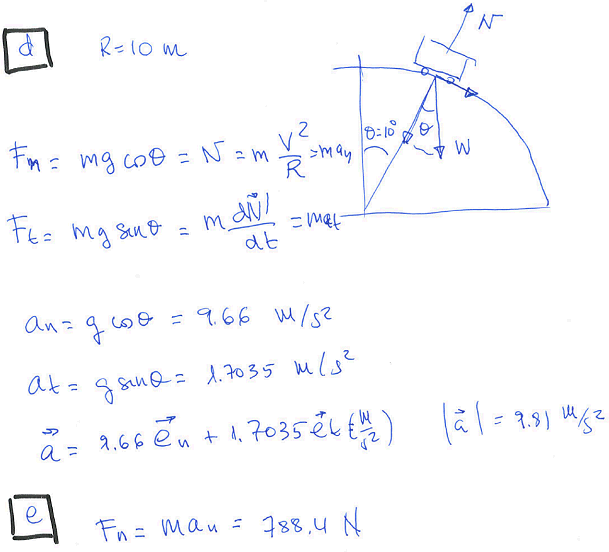 d R=10 m
N
θ=10° θ W
Fn = mg cosθ = N = m V²/R = man
Ft = mg sinθ = m d|v⃗|/dt = mat
an = g cosθ = 9.66 m/s²
at = g sinθ = 1.7035 m/s²
a⃗ = 9.66 e⃗n + 1.7035 e⃗t (m/s²) |a⃗| = 9.81 m/s²
e Fn = man = 788.4 N